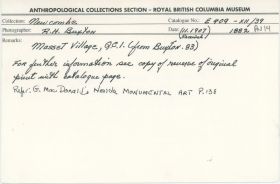 ANTHROPOLOGICAL COLLECTIONS SECTION - ROYAL BRITISH COLUMBIA MUSEUM
Collection: Newcombe Catalogue No.: E 909 - XII/39
Photographer: R.H. Buxton (1907) 1882 PN 14
Remarks:
Masset Village, Q.C.I. (from Buxton. 83)
For further information see copy of reverse of original
print with catalogue page.
Refer: G. MacDonald's HAIDA MONUMENTAL ART P.138